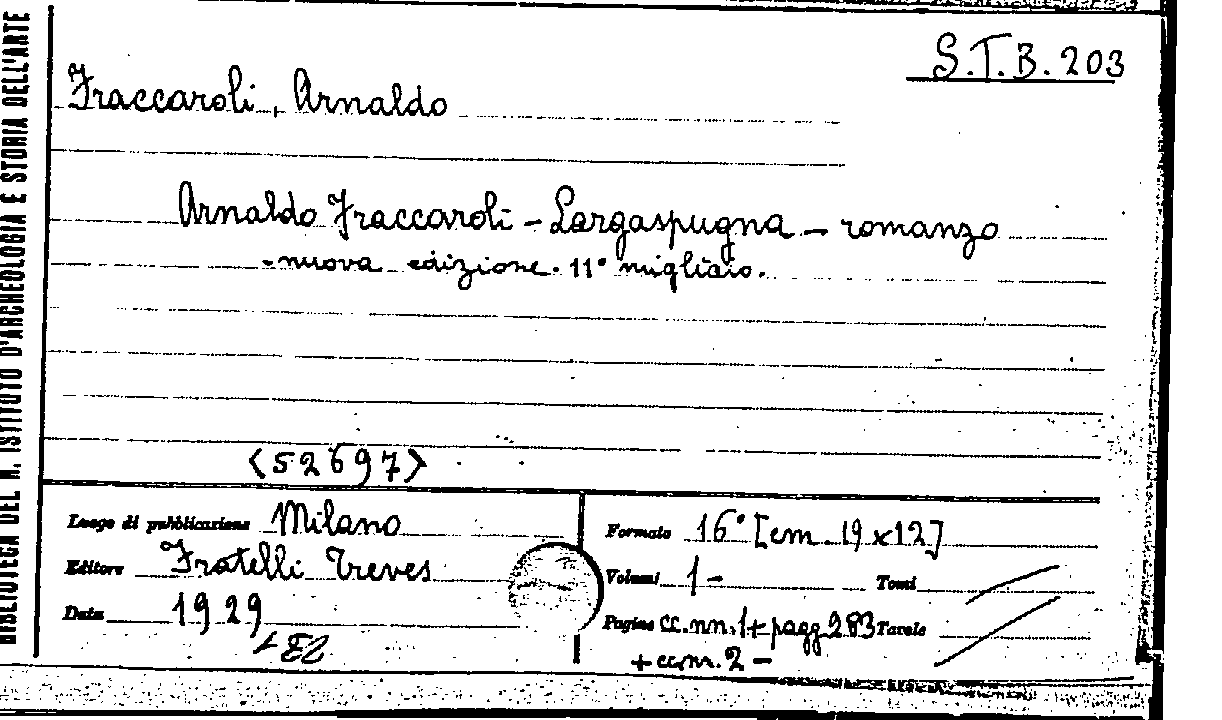 BIBLIOTECA DEL R. ISTITUTO D'ARCHEOLOGIA E STORIA DELL'ARTE
S.T.B. 203
Fraccaroli, Arnaldo
Arnaldo Fraccaroli - Largaspugna - romanzo
- nuova edizione. 11° migliaio.
<52697>
Luogo di pubblicazione Milano
Editore Fratelli Treves
Data 1929
Formato 16° [cm. 19 x 12]
Volumi 1 - Tomi
Pagine cc.nn.1 + pagg 283 Tavole
+ cc.nn. 2 -